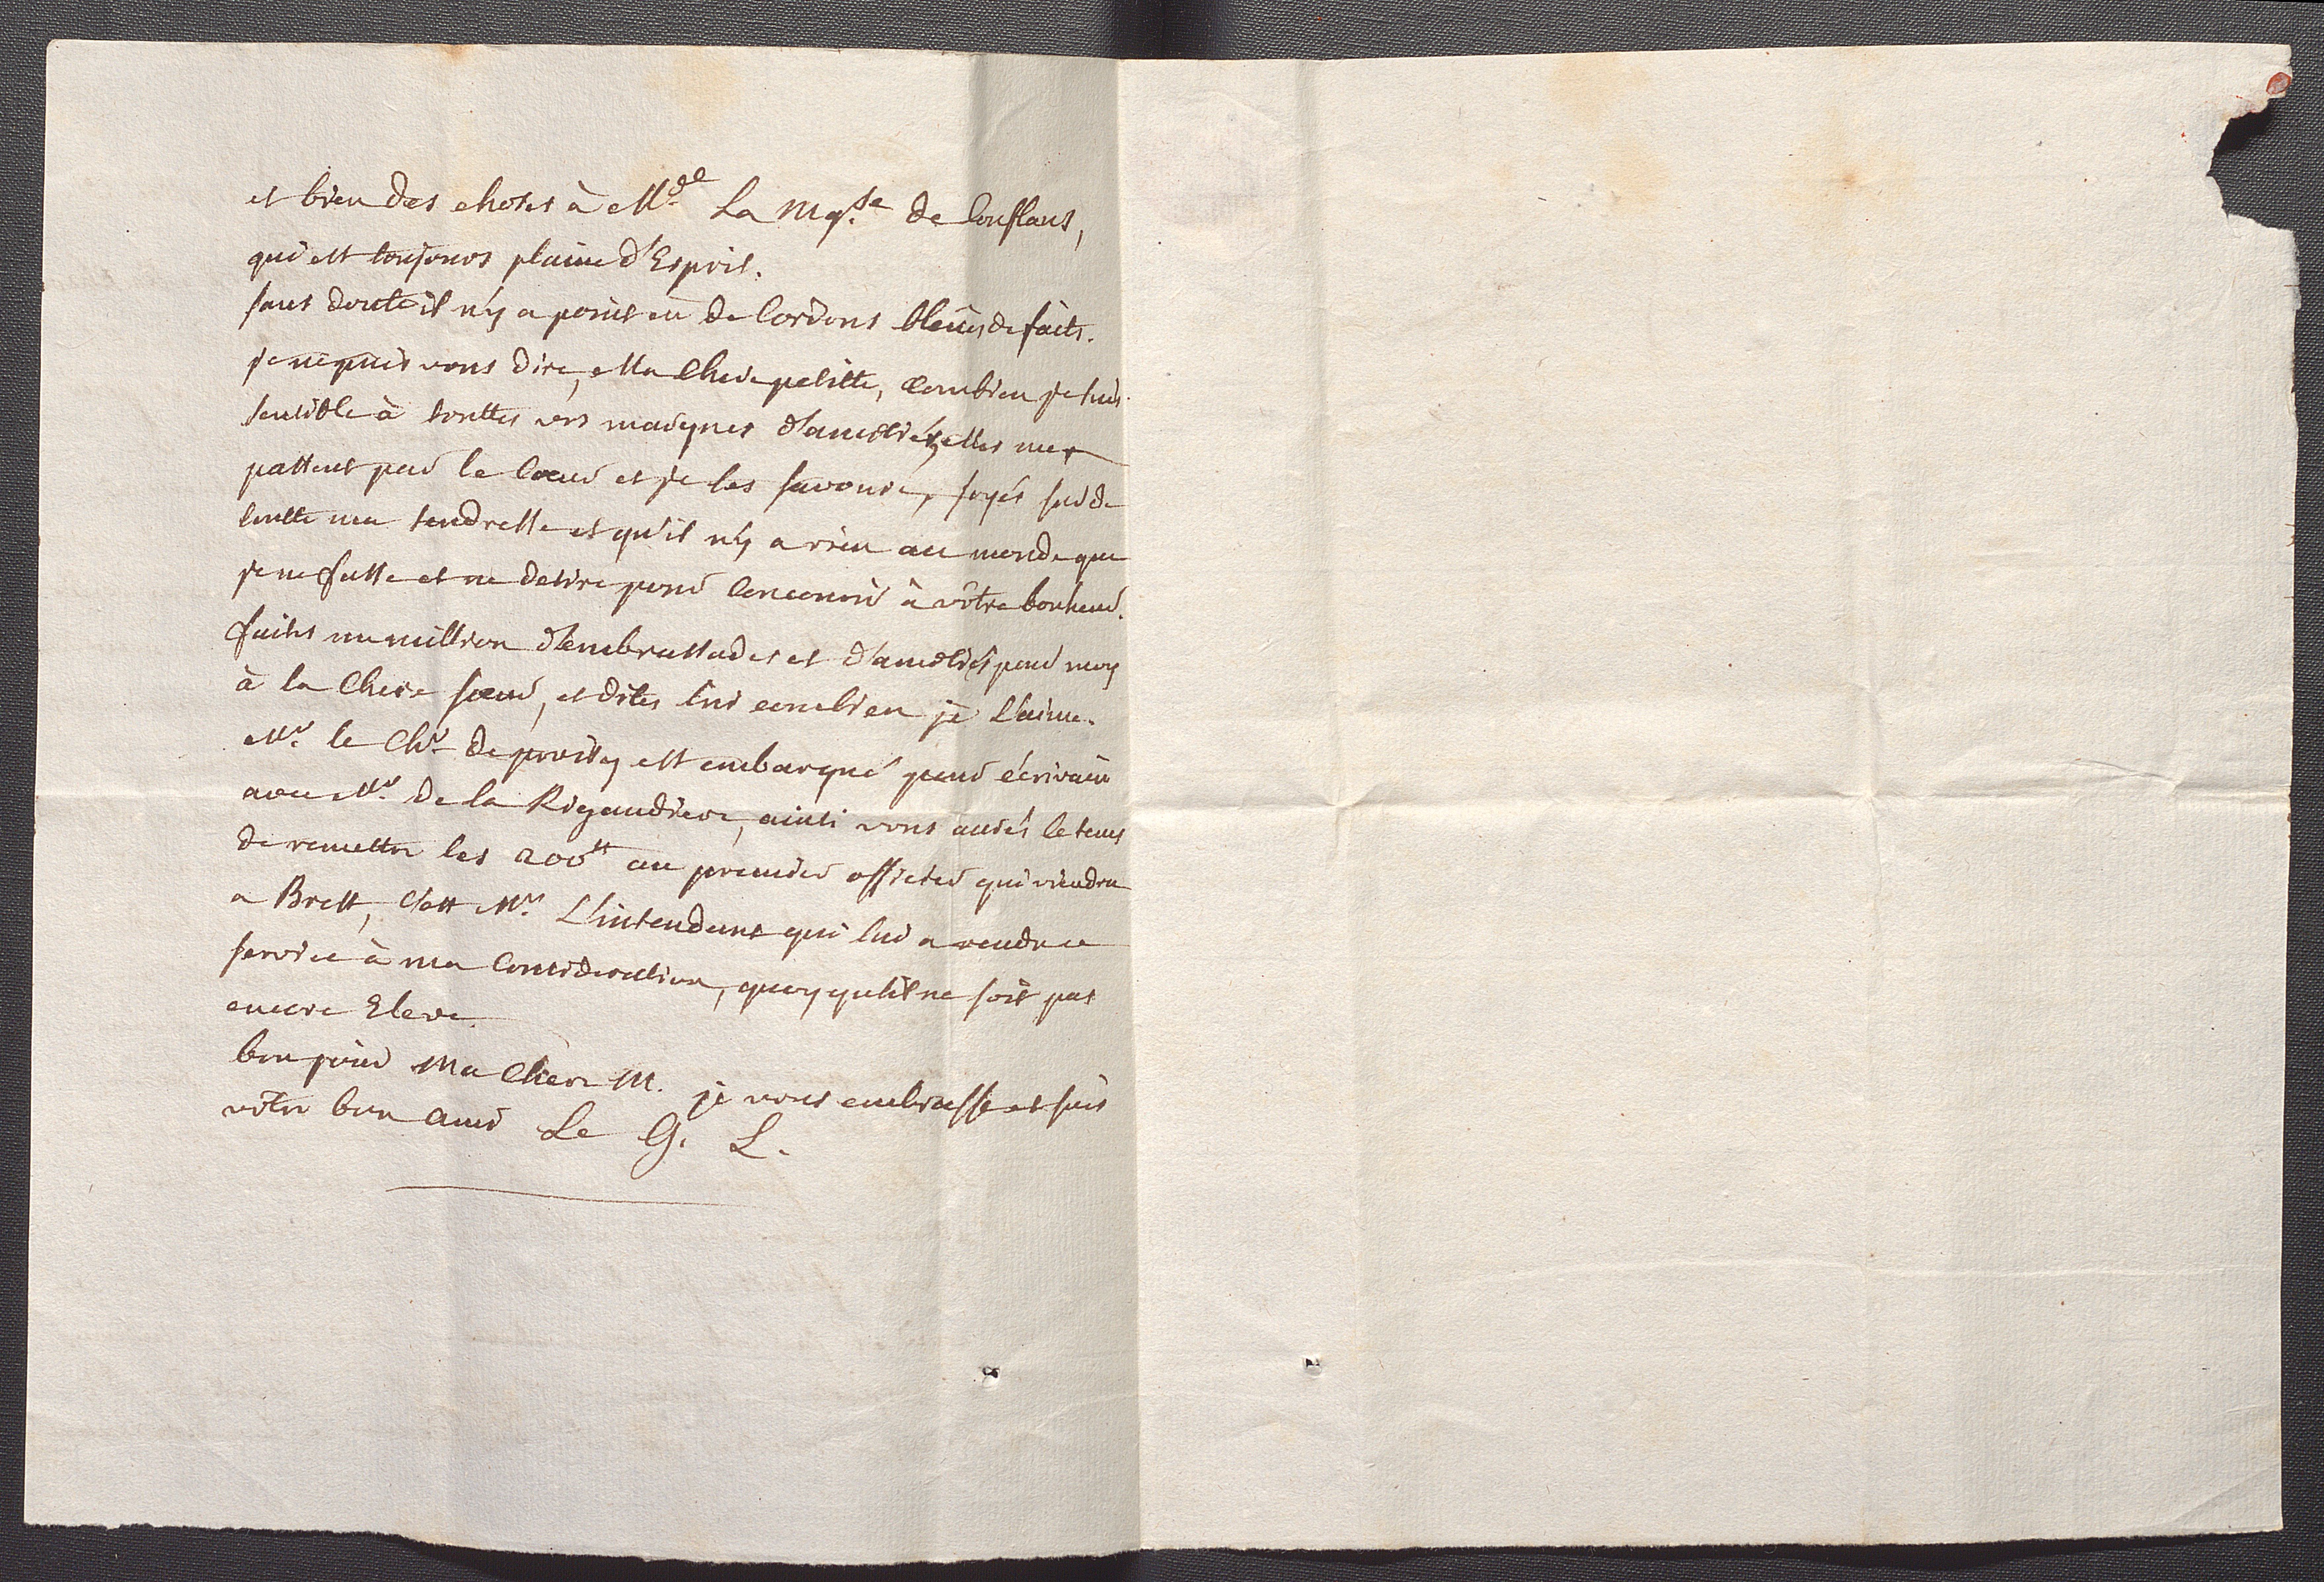 et bien des choses à Mde. La Mqse. de Conflans,
qui est toujours plaine d'Esprit.
sans doute il n'y a point eu de Cordons bleüs de faits.
je ne puis vous dire, Ma Chere petitte, Combien je suis
sensible à touttes vos marques d'amitiés, elles me
passent par le Cœur et je les savoure, soyés sur de
toutte ma tendresse et qu'il n'y a rien au monde que
je ne fasse et ne desire pour Concourir à vôtre bonheur.
faites un million d'embrassades et d'amitiés pour moy
à la Chere sœur, et dites lui combien je L'aime.
Mr. le Chr. de proisy est embarqué pour écrivain
avec Mr. de la Rigaudiere, ainsi vous aurés le tems
de remettre les 200tt au premier officier qui viendra
a Brest, C'est Mr. L'intendant qui lui a rendu ce
service à ma Consideration, quoy qu'il ne soit pas
encore Eleve.
bon jour Ma Chere M. je vous embrasse et suis
vôtre bon ami Le G. L.